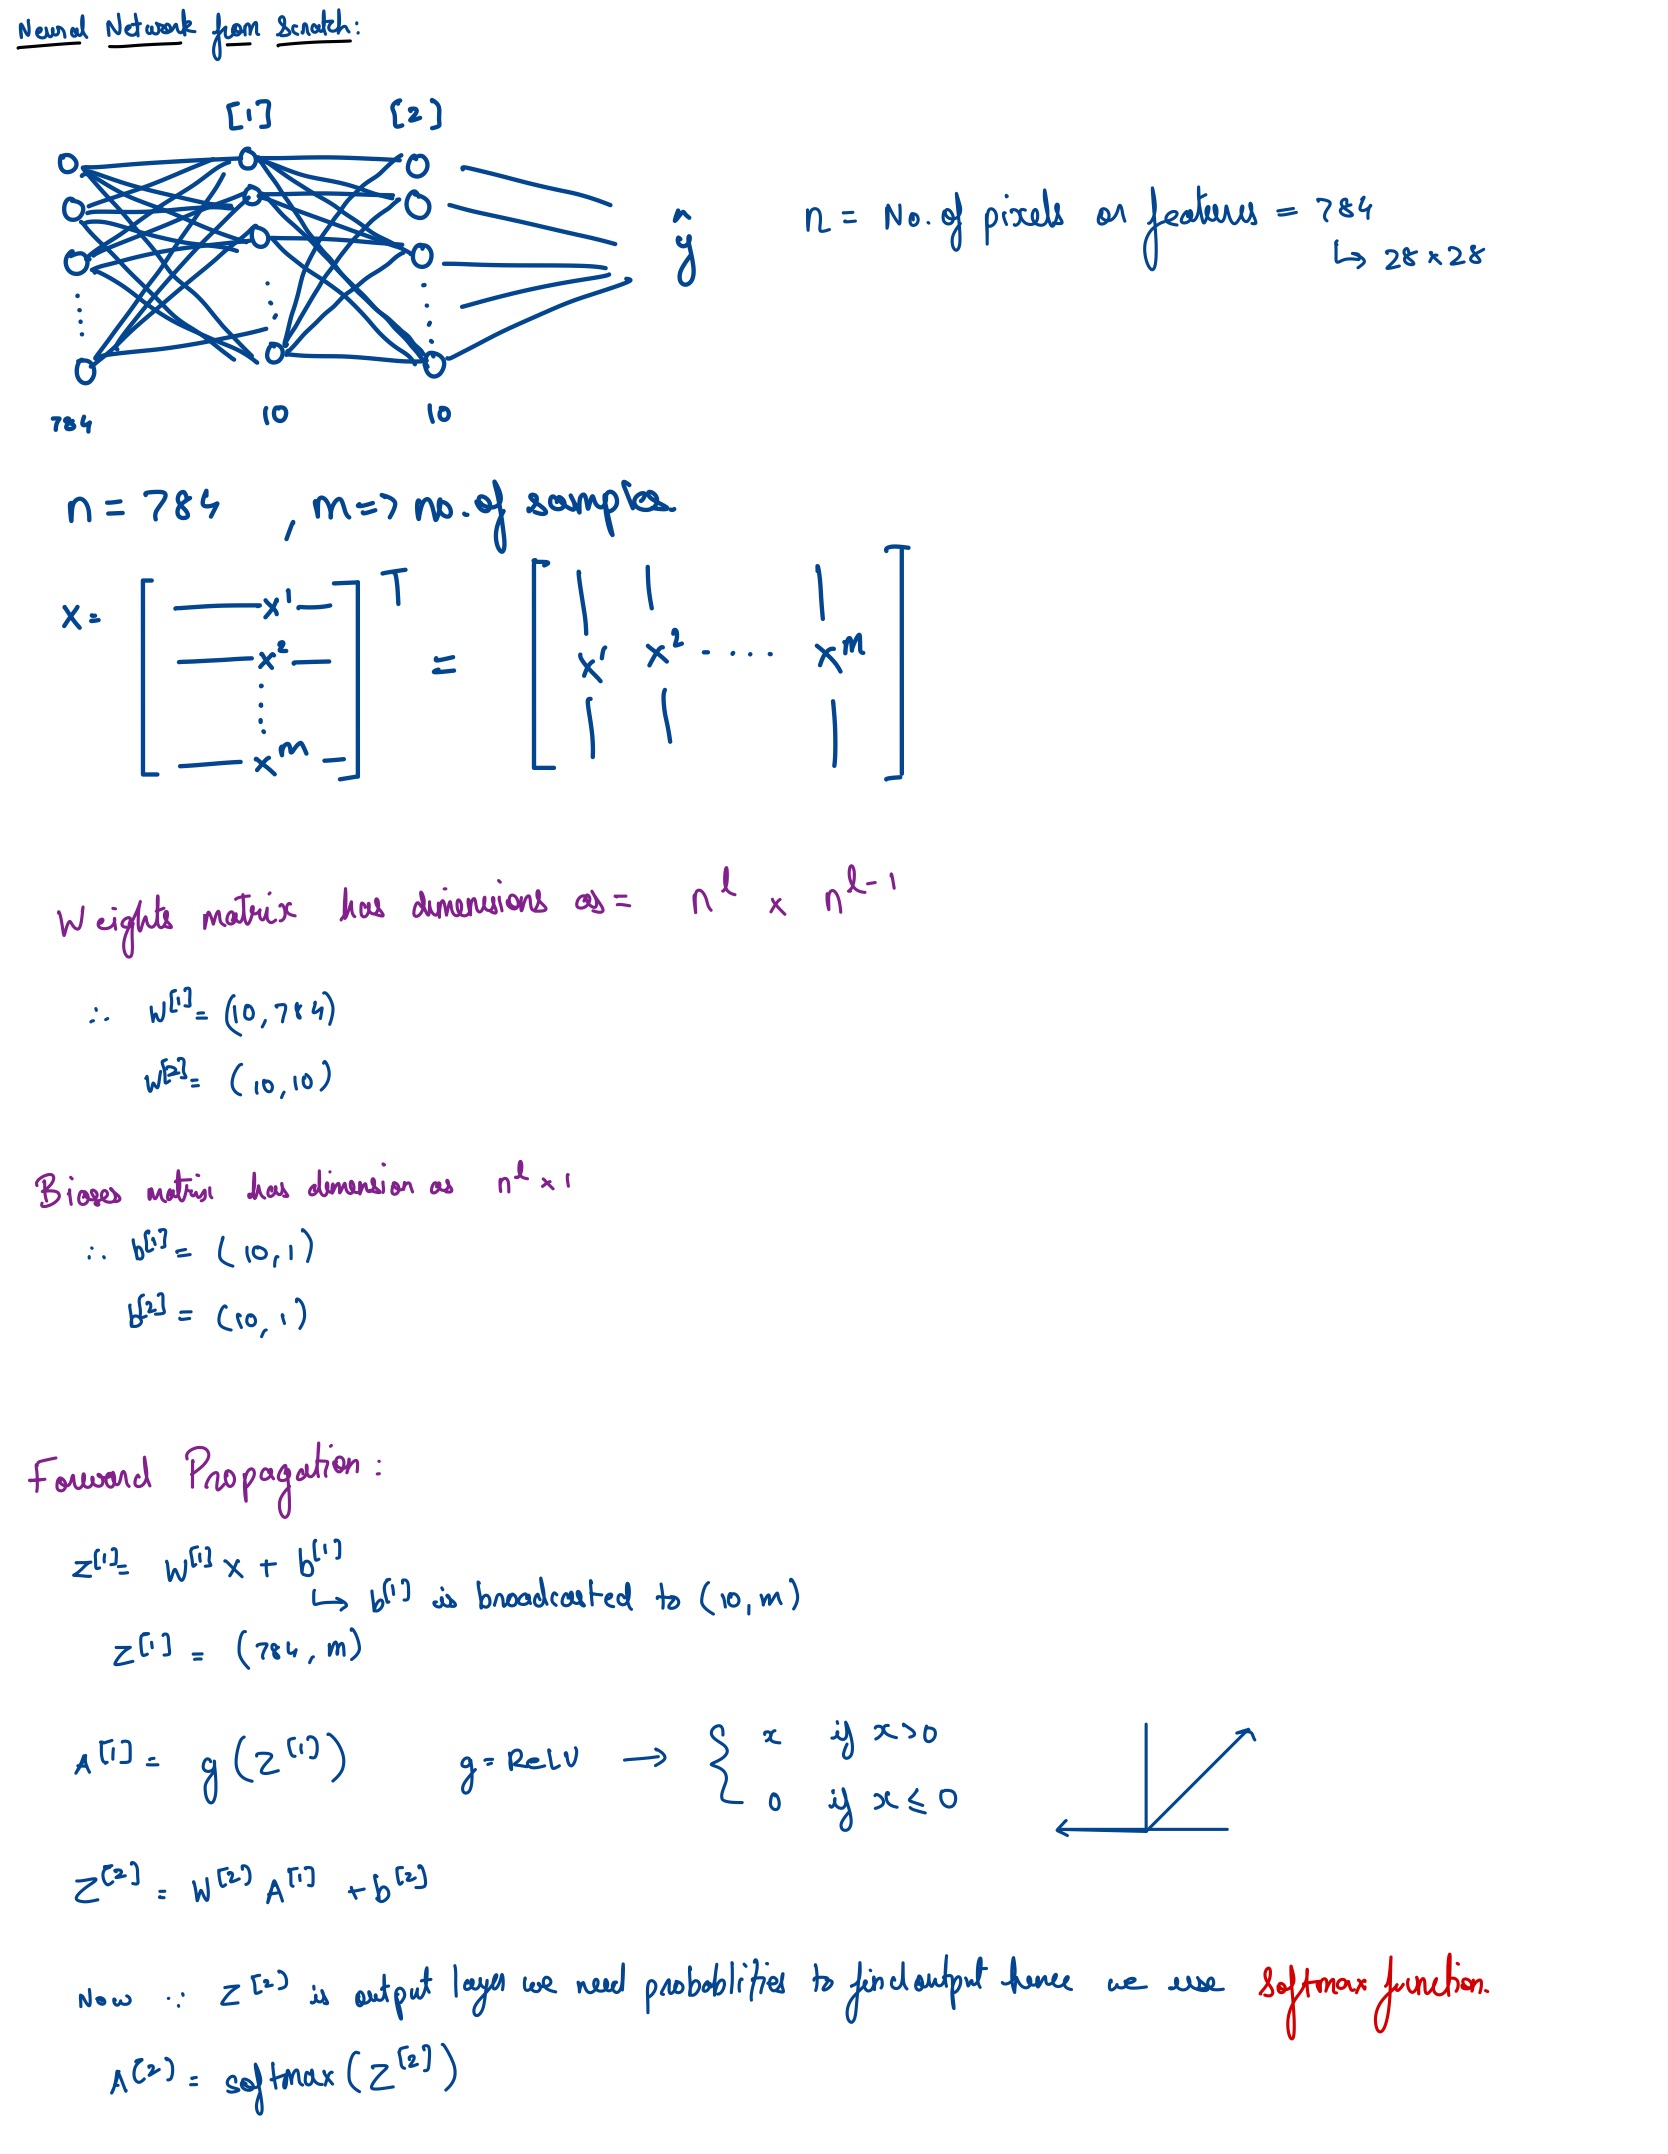 Neural Network from Scratch:
[1] [2]
ŷ
n = No. of pixels or features = 784
↳ 28 × 28
784 10 10
n = 784 , m => no. of samples
X = [ — x¹ — — x² — ⋮ — xᵐ — ]ᵀ = [ x¹ x² .... xᵐ ]
Weights matrix has dimensions as = n^l × n^(l-1)
∴ W[1] = (10, 784)
W[2] = (10, 10)
Biases matrix has dimension as n^l × 1
∴ b[1] = (10, 1)
b[2] = (10, 1)
Forward Propagation:
Z[1] = W[1] X + b[1]
↳ b[1] is broadcasted to (10, m)
Z[1] = (784, m)
A[1] = g(Z[1]) g = ReLU → { x if x > 0
0 if x ≤ 0
Z[2] = W[2] A[1] + b[2]
Now ∵ Z[2] is output layer we need probablities to find output hence we use softmax function.
A[2] = softmax(Z[2])